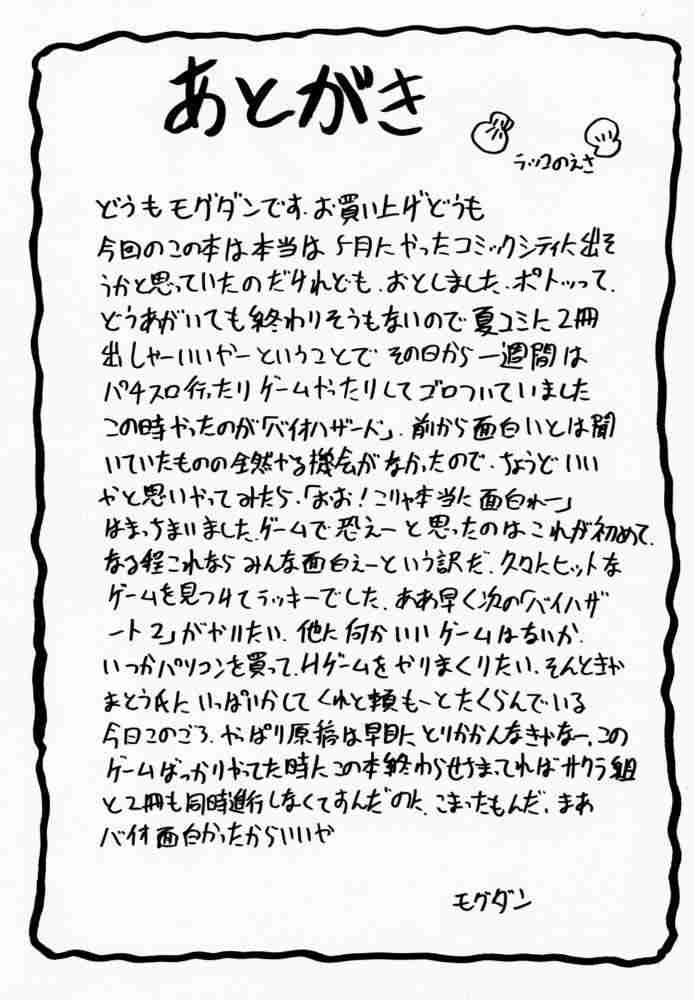 あとがき
ラッコのえさ
どうもモグダンです.お買い上げどうも
今回のこの本は本当は5月にやったコミックシティに出そ
うかと思っていたのだけれども、おとしました、ポトッって.
どうあがいても終わりそうもないので夏コミに2冊
出しゃーいいやーということでその日から一週間は
パチスロ行ったりゲームやったりしてゴロついていました
この時やったのが「バイオハザード」.前から面白いとは聞
いていたものの全然やる機会がなかったので、ちょうどいい
やと思いやってみたら、「おお!こりゃ本当に面白れー」
はまっちまいました.ゲームで恐えーと思ったのはこれが初めて.
なる程これならみんな面白えーという訳だ.久々にヒットな
ゲームを見つけてラッキーでした.ああ早く次の「バイハザ
ート2」がやりたい.他に何かいいゲームはないか.
いつかパソコンを買って、Hゲームをやりまくりたい.そんときゃ
まとう氏にいっぱいかしてくれと頼もーとたくらんでいる
今日このごろ.やっぱり原稿は早目にとりかかんなきゃなー、この
ゲームばっかりやってた時にこの本終わらせちまってればサクラ組
と2冊も同時進行しなくてすんだのに、こまったもんだ.まあ
バイオ面白かったからいいや
モグダン